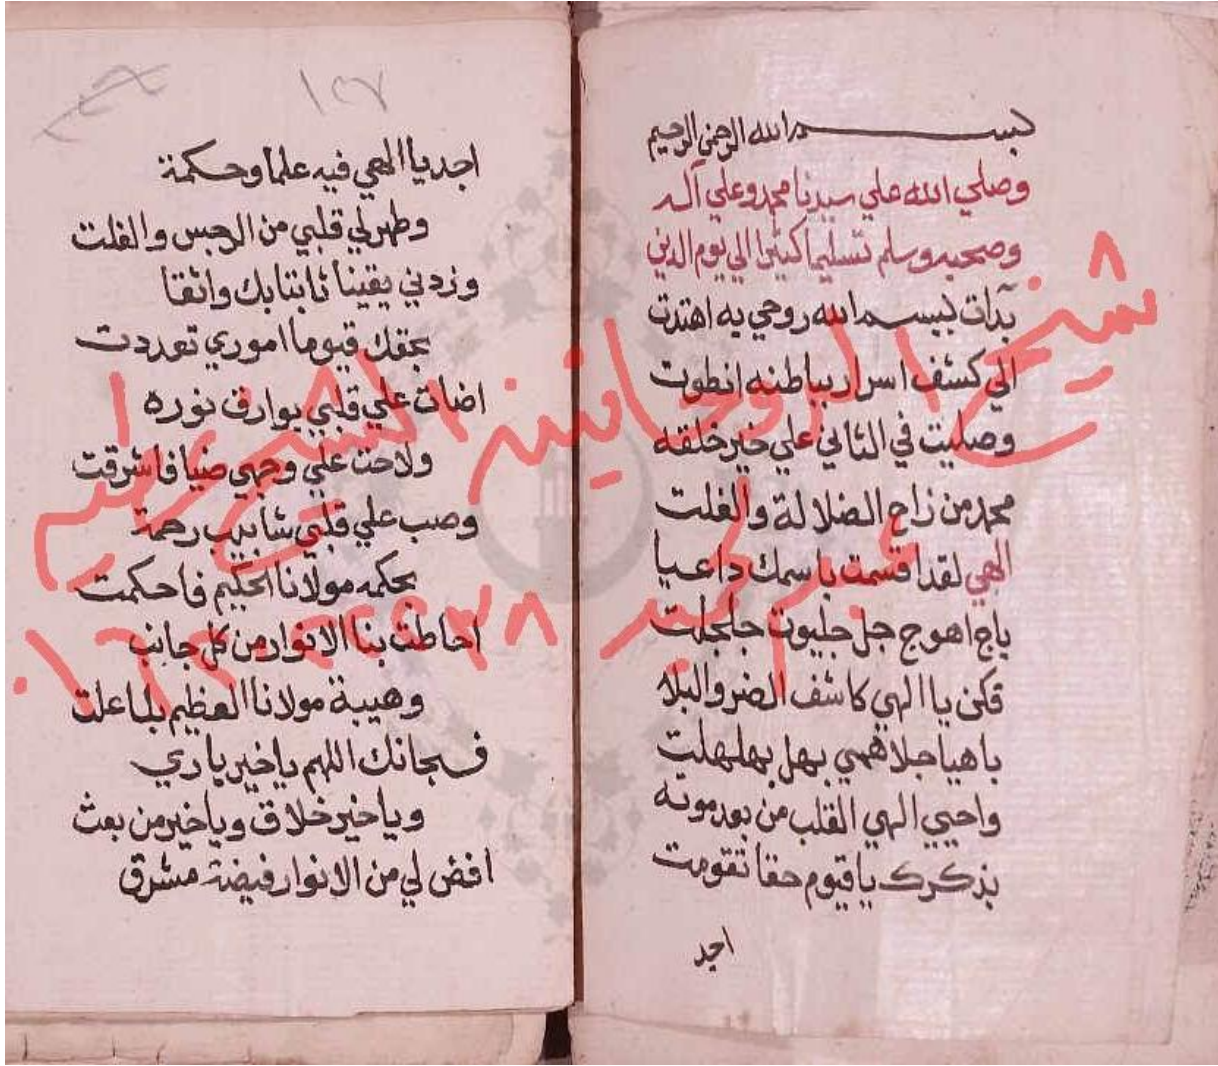 بسم الله الرحمن الرحيم
وصلي الله علي سيدنا محمد وعلي آله
وصحبه وسلم تسليما كثيرا الي يوم الدين
بدات ببسم الله روحي به اهتدت
الي كشف اسرار بباطنه انطوت
وصليت في الثاني علي خير خلقه
محمد من زاح الضلالة والغلت
الهي لقد اقسمت باسمك داعيا
باج اهوج جل جليوت جلجلت
فكن يا الهي كاشف الضر والبلا
باهيا جلا همي بهل بهلهلت
واحيي الهي القلب من بعد موته
بذكرك يا قيوم حقا تقومت
اجد
١٣٧
اجد يا الهي فيه علما وحكمة
وطهر لي قلبي من الرجس والغلت
وزدني يقينا ثابتا بك واثقا
بحقك قيوما اموري تعددت
اضات علي قلبي بوارق نوره
ولاحت علي وجهي ضيا فاشرقت
وصب علي قلبي شابيب رحمة
بحكمه مولانا الحكيم فاحكمت
احاطت بنا الانوار من كل جانب
وهيبة مولانا العظيم بلما علت
فسبحانك اللهم يا خير باري
ويا خير خلاق ويا خير من بعث
افض لي من الانوار فيضة مشرق
شيخ الروحانية الشيخ